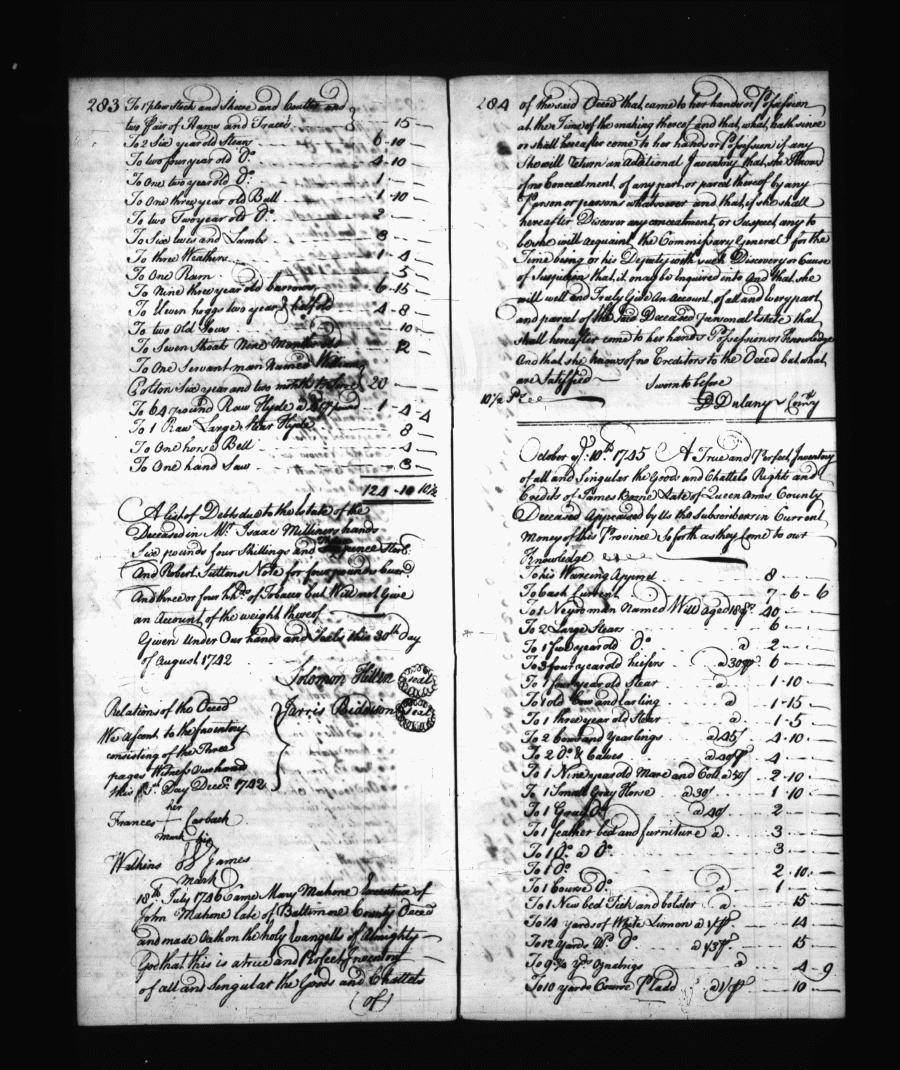 283 To 1 plow Stock and Sheare and Coulter and
two Pair of Hams and Traces } " 15 "
To 2 Six year old Steers 6 " 10 "
To two four year old Do. 4 " 10
To One two year old Do. 1 "
To One three year old Bull 1 " 10
To two Two year old Do. 2 "
To Six Ewes and Lambs 3
To three Weathers 1 " 4
To One Ram 5
To Nine three year old barrows 6 " 15
To Eleven hoggs two year & half old 4 " 8
To two Old Sows 10
To Seven Shoats Nine Months old 12
To One Servant man Named William
Colton Six year and two months to Serve } 20
To 64 pound Raw Hyde a pound 1 " 4 4
To 1 Raw Large Hyde 8
To One horse Bell 4
To One hand Saw 3
124 " 10 10½
A List of Debts due to the Estate of the
Deceased in Mr. Isaac Milliners hands
Six pounds four Shillings and pence Sterl.
And Robert Suttons Note for four pounds Curr.
And three or four hhds. of Tobacco but Will not Give
an Account of the weight thereof
Given Under Our hands and Seals this 30th day
of August 1742
Solomon Hillen Seal
Jarvis Biddison Seal
Relations of the Deced
We assent to the Inventory
consisting of the Three
pages Witness Our hand
this Day Decr. 1742
her
Frances + Carback
mark his
Watkins James
Mark
18th July 1746 Came Mary Mahone Executrix of
John Mahone late of Baltimore County Deced
and made Oath on the holy Evangells of Almighty
God that this is a true and Perfect Inventory
of all and Singular the Goods and Chattels
(of)
284 of the said Deced that came to her hands or Possession
at the Time of the making thereof and that what hath since
or shall hereafter come to her hands or Possession if any
She will Return an Additional Inventory that she Knows
of no Concealment of any part or parcel thereof by any
Person or persons whatsoever and that if she shall
hereafter Discover any concealment, or Suspect any to
be she will acquaint the Commissary General for the
Time being or his Deputy with such Discovery or Cause
of Suspicion that it may be Enquired into And that she
will well and Truly Give An Account of all and every part
and parcel of the said Deceased Personal Estate that
shall hereafter come to her hands Possession or Knowledge
And that she knows of no Creditors to the Deced but what
are Satisfied Sworn to before
D Dulany Comry
October ye. 10th 1745 A True and Perfect Inventory
of all and Singular the Goods and Chattels Rights and
Credits of James Late of Queen Anns County
Deceased Appraised by Us the Subscribers in Current
Money of this Province So forth as they Come to our
Knowledge
To his Wareing Apprel 8
To Cash Current 7 " 6 " 6
To 1 Negro man Named Will aged 40
To 2 Large Stears 6
To 1 five year old Do. a 2
To 3 four year old heifers a 30/ 6
To 1 four year old Stear a 1 " 10
To 1 old Cow and earling a 1 " 15
To 1 three year old Stear a 1 " 5
To 2 Cows and Yearlings a 45/ 4 " 10
To 2 Do. & Calves a 40/ 4
To 1 Nine year old Mare and Colt a 50/ 2 " 10
To 1 Small Gray Horse a 30/ 1 " 10
To 1 Gray Do. a 40/ 2
To 1 feather bed and furniture a 3
To 1 Do. a Do. 3
To 1 Do. 2 " 10
To 1 Course Do. a 1
To 1 New bed Tick and bolster a 15
To 14 yards of White Linnen a 1/ 14
To 12 Yards Do. Do. a 1/3 15
To 9½ yds Oznabrigs a 4 " 9
To 10 yards Course Pladd a 1/ 10